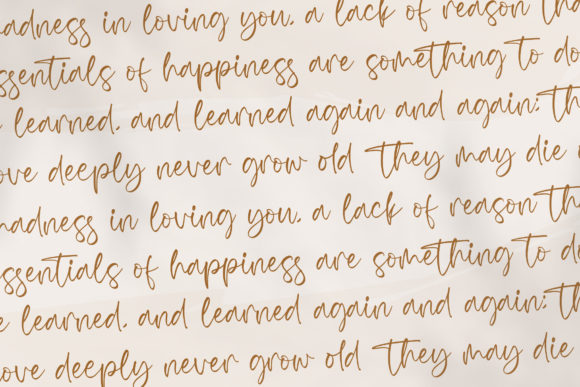 madness in loving you. a lack of reason tha
ssentials of happiness are something to do
e learned. and learned again and again; th
ove deeply never grow old they may die o
nadness in loving you. a lack of reason tha
ssentials of happiness are something to do
e learned. and learned again and again; th
ove deeply never grow old they may die